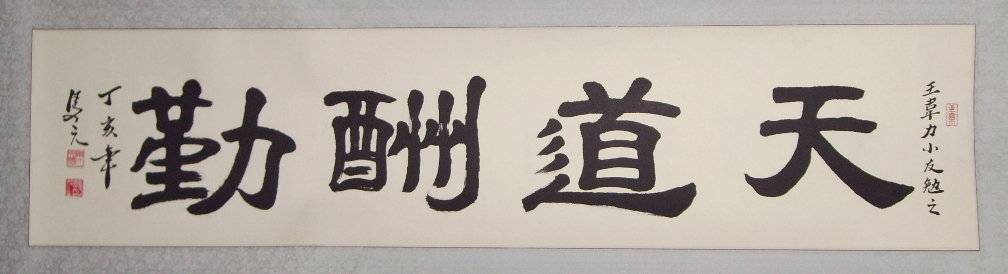 王韋力小友勉之
天道酬勤
丁亥年